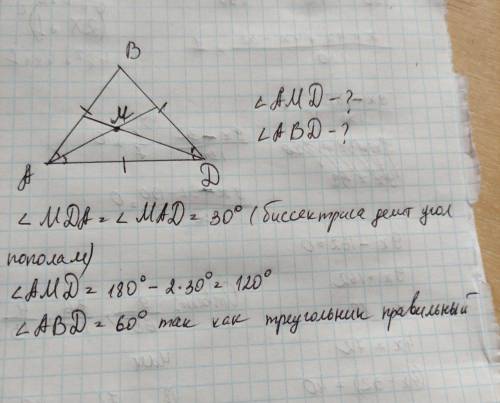 B
M
A
D
∠AMD-?
∠ABD-?
∠MDA = ∠MAD = 30° (биссектриса делит угол
пополам)
∠AMD = 180° - 2·30° = 120°
∠ABD = 60° так как треугольник правильный